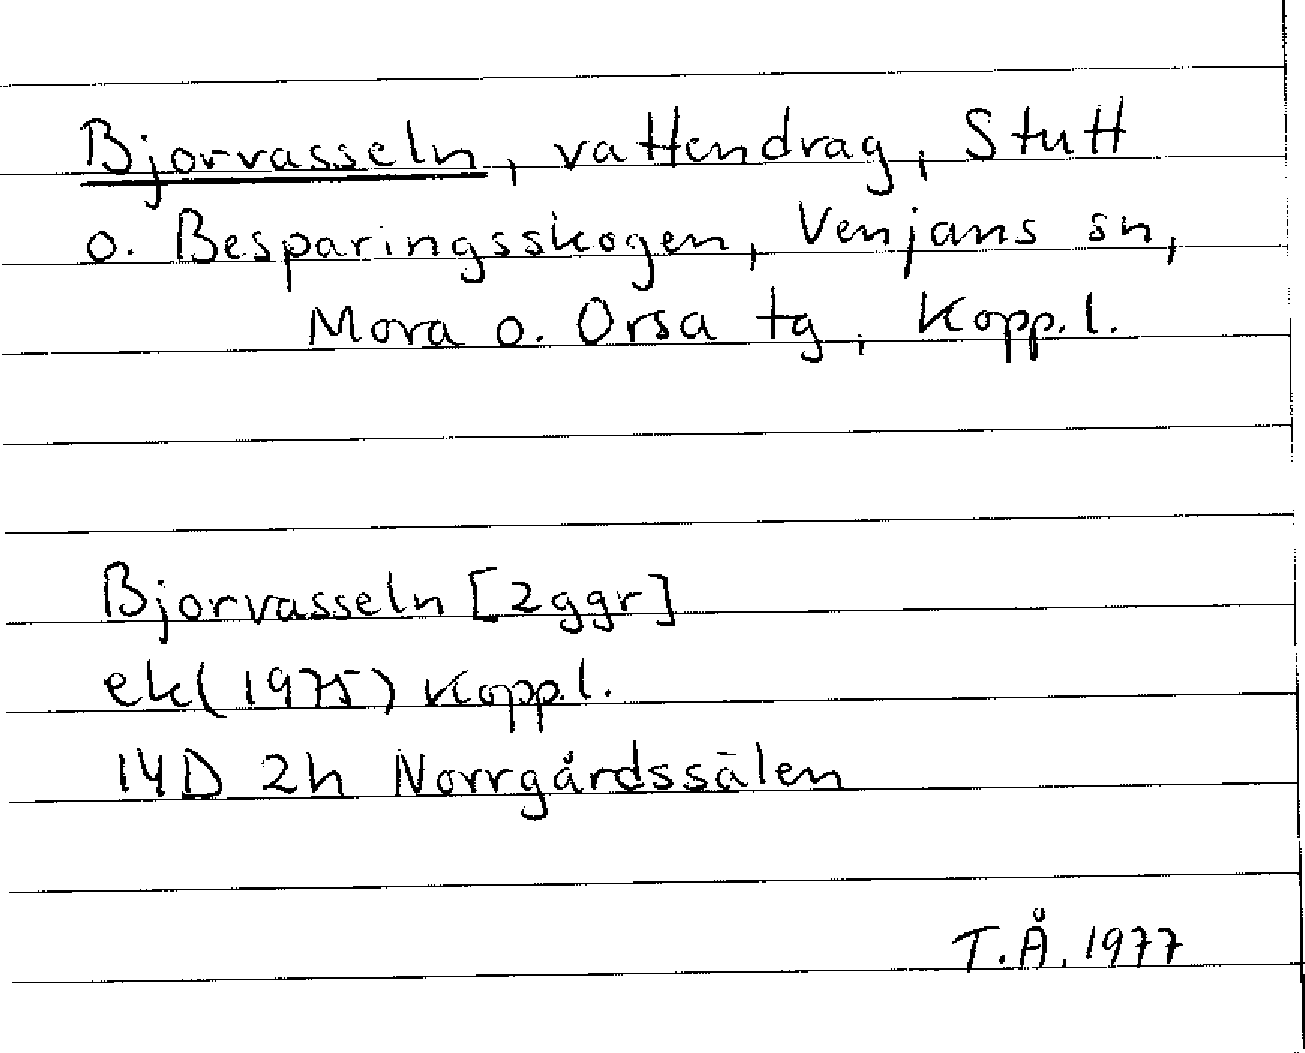 Bjorvasseln, vattendrag, Stutt
o. Besparingsskogen, Venjans sn,
Mora o. Orsa tg, Kopp.l.
Bjorvasseln [2ggr]
ek(1975) Kopp.l.
14D 2h Norrgårdssälen
T.Å. 1977